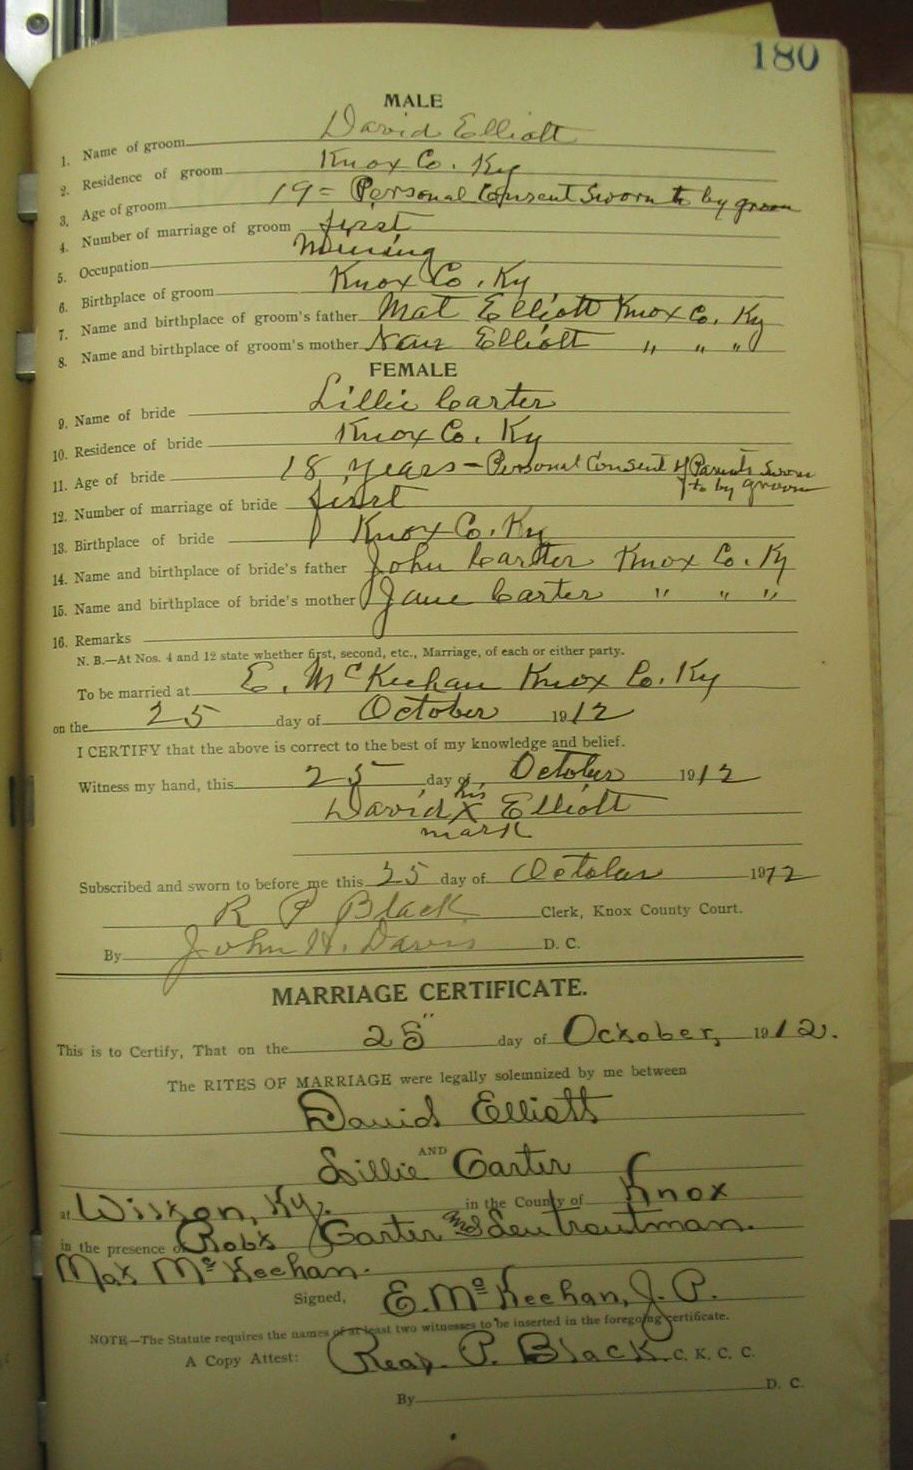 180
MALE
1. Name of groom David Elliott
2. Residence of groom Knox Co. Ky
3. Age of groom 19 = Personal Consent Sworn to by groom
4. Number of marriage of groom first
5. Occupation Mining
6. Birthplace of groom Knox Co. Ky
7. Name and birthplace of groom's father Mat Elliott Knox Co. Ky
8. Name and birthplace of groom's mother Elliott " " "
FEMALE
9. Name of bride Lillie Carter
10. Residence of bride Knox Co. Ky
11. Age of bride 18 years - Personal Consent of Parents Sworn
to by groom
12. Number of marriage of bride first
13. Birthplace of bride Knox Co. Ky
14. Name and birthplace of bride's father John Carter Knox Co. Ky
15. Name and birthplace of bride's mother Jane Carter " " "
16. Remarks
N. B.—At Nos. 4 and 12 state whether first, second, etc., Marriage, of each or either party.
To be married at E. McKeehan Knox Co. Ky
on the 25 day of October 1912
I CERTIFY that the above is correct to the best of my knowledge and belief.
Witness my hand, this 25 day of October 1912
his
David X Elliott
mark
Subscribed and sworn to before me this 25 day of October 1912
R P Black Clerk, Knox County Court.
By John H. Davis D. C.
MARRIAGE CERTIFICATE.
This is to Certify, That on the 25" day of October, 1912.
The RITES OF MARRIAGE were legally solemnized by me between
David Elliott
AND
Lillie Carter
at Wilson, Ky. in the County of Knox
in the presence of Robt Carter and Troutman.
Max McKeehan.
Signed, E. McKeehan, J. P.
NOTE—The Statute requires the names of at least two witnesses to be inserted in the foregoing certificate.
A Copy Attest: Read P. Black C. K. C. C.
By D. C.